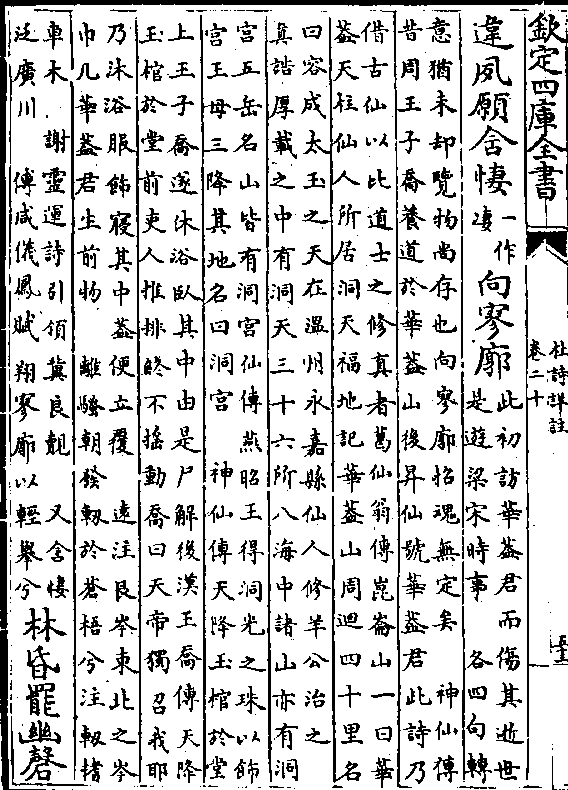 欽定四庫全書
杜詩詳註
卷二十
違夙願含悽一作凄向寥廓此初訪華蓋君而傷其逝世
是遊梁宋時事 各四句轉
意猶未卻覽物尚存也向寥廓招魂無定矣 神仙傳
昔周王子喬養道於華蓋山後昇仙號華蓋君此詩乃
借古仙以比道士之修真者葛仙翁傳崑崙山一曰華
蓋天柱仙人所居洞天福地記華蓋山周迴四十里名
曰容成太玉之天在溫州永嘉縣仙人修羊公治之
真誥厚載之中有洞天三十六所八海中諸山亦有洞
宮五岳名山皆有洞宮仙傳燕昭王得洞光之珠以飾
宮王母三降其地名曰洞宮 神仙傳天降玉棺於堂
上王子喬遂沐浴臥其中由是尸解後漢王喬傳天降
玉棺於堂前吏人推排終不搖動喬曰天帝獨召我耶
乃沐浴服飾寢其中蓋便立覆 遠注艮岑東北之岑
巾几華蓋君生前物 離騷朝發軔於蒼梧兮注軔搘
車木 謝靈運詩引領冀良覿 又含悽
泛廣川 傅咸儀鳳賦翔寥廓以輕舉兮
林昏罷幽磬